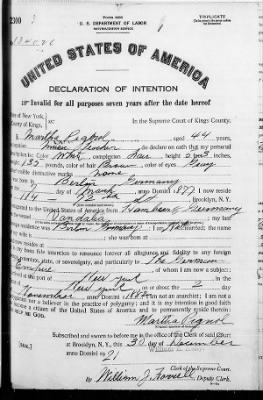 U. S. DEPARTMENT OF LABOR
NATURALIZATION SERVICE
TRIPLICATE
UNITED STATES OF AMERICA
DECLARATION OF INTENTION
Invalid for all purposes seven years after the date hereof
of New York,
County of Kings,
In the Supreme Court of Kings County.
Martha aged 44 years,
do declare on oath that my personal
is: Color White, complexion Fair, height 5 feet 3 inches,
132 pounds, color of hair Brown, color of eyes Grey
visible distinctive marks None
Berlin Germany
day of , anno Domini 1877 I now reside
Brooklyn, N.Y.
to the United States of America from Hamburg Germany
vessel Vandalia my last
was Berlin Germany married; the name
she was born at
now resides at
my bona fide intention to renounce forever all allegiance and fidelity to any foreign
state, or sovereignty, and particularly to The German
Empire of whom I am now a subject;
port of New York
New York on or about the 2 day
November anno Domini 188 I am not an anarchist; I am not a
nor a believer in the practice of polygamy; and it is my intention in good faith
become a citizen of the United States of America and to permanently reside therein:
HELP ME GOD.
Martha
Subscribed and sworn to before me in the office of the Clerk of said Court
at Brooklyn, N.Y., this 30 day of December
anno Domini 1921
[SEAL]
Clerk of the Supreme Court.
By William J. Deputy Clerk.